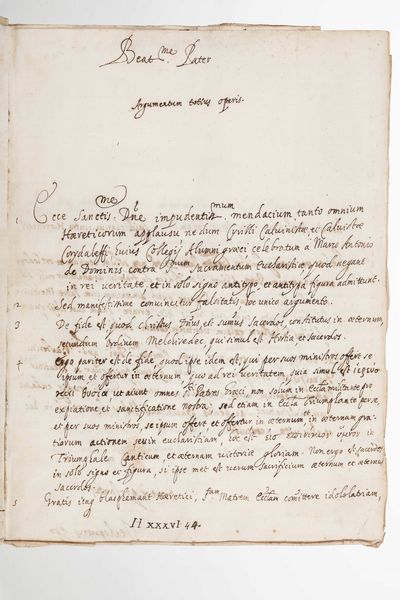 Beat.me Pater
Argumentum totius operis.
1 Ecce Sanct.me Dñe impudentiss.mum mendacium tanto omnium
Hæreticorum applausu ne dum Cyrilli Caluinistæ, et Caluistæ
Corydaleffi huius Collegij Alumni græci celebratum a Marc Antonio
de Dominis contra Sacramentum Eucharistiæ quod negant
in rei veritate, et in solo signo antitypo, et antitypa figura admittunt.
2 Sed manifestissime conuincitur falsitatis hoc unico argumento.
3 De fide est quod christus Dñus, est sumus sacerdos, constitutus in æternum,
secundum ordinem Melchisedec, qui simul est Hostia et sacerdos.
4 Ergo pariter est de fide, quod ipse idem est, qui per suos ministros offert se
ipsum et offertur in æternum quo ad rei veritatem, quia simul est
ut aiunt omnes S.ti Patres Græci, non solum in Eccla militante pro
expiatione, et sanctificatione nostra, sed etiam in Eccla Triumphante per se
et per suos ministros se ipsum offert et offertur in æternum in æternam gra-
tiarum actionem seu in eucharistiam, hoc est in
Triumphale Canticum, et æternam victoriæ gloriam. Non ergo est sacerdos
in solo signo et figura, si ipse met est verum sacrificium æternum et æternus
sacerdos.
5 Gratis itaq blasphemant Hæretici, S.am Matrem Eccl.am comittere idololatriam,
II XXXVI 44.